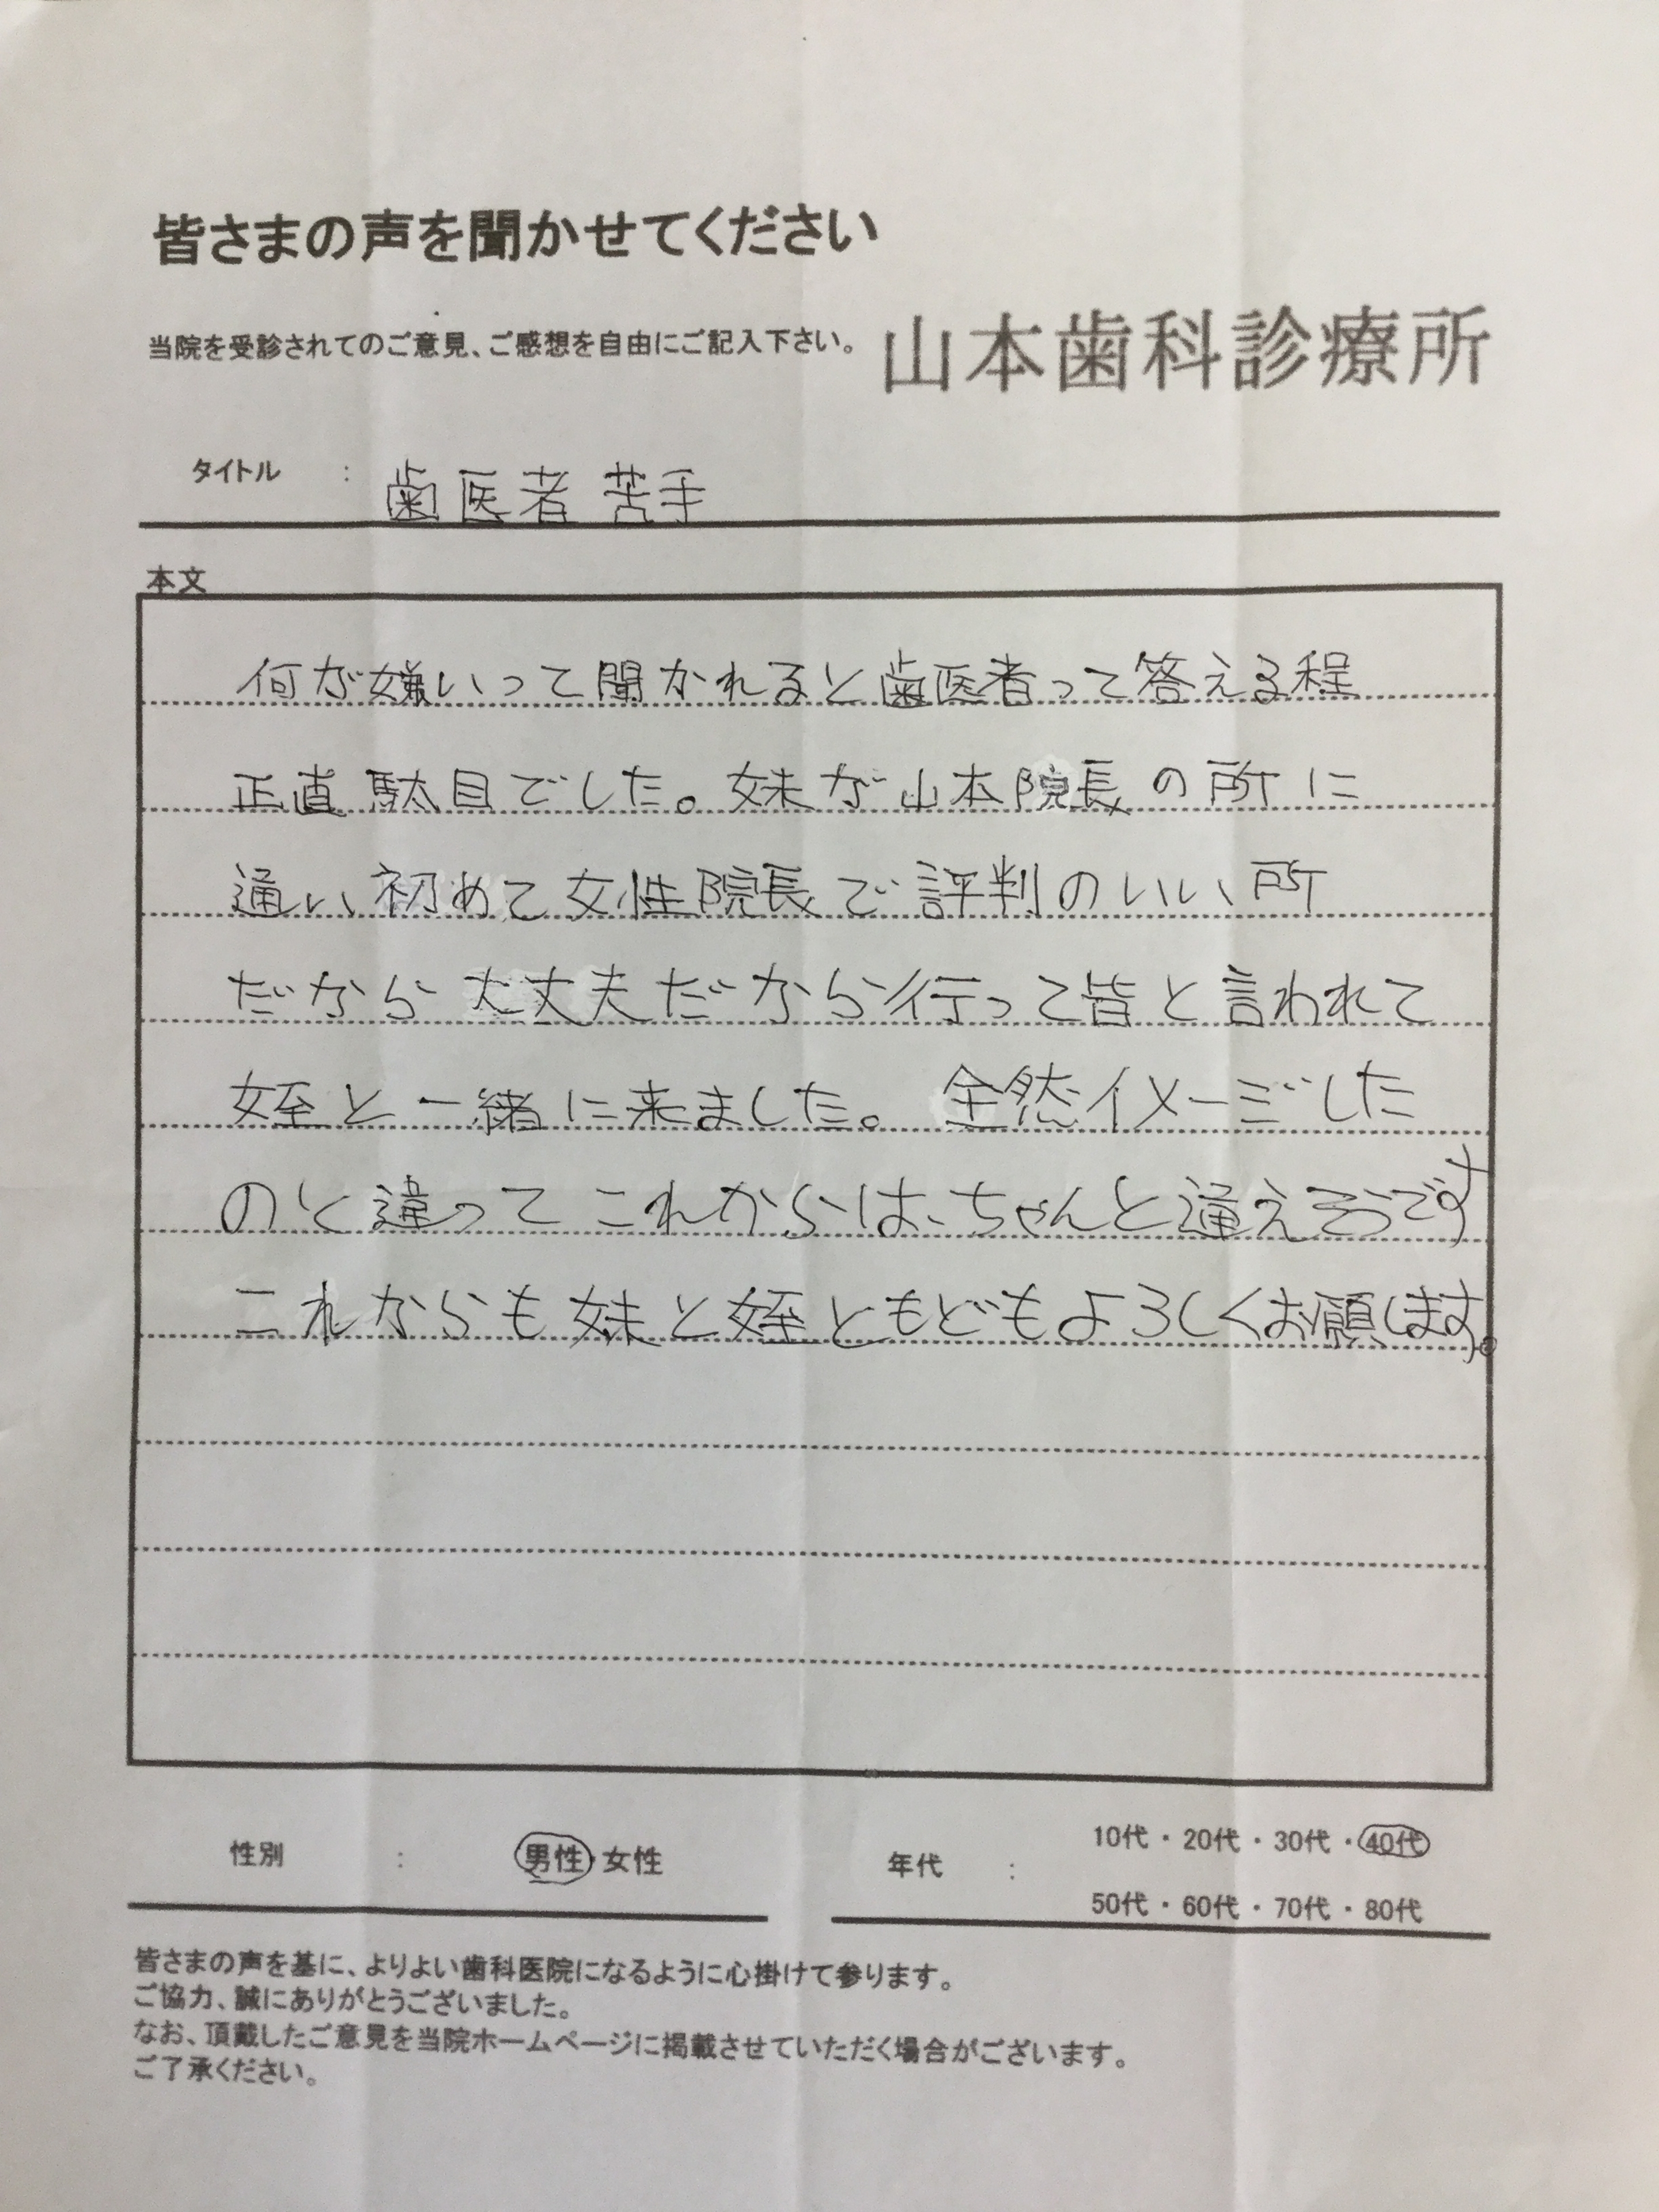 皆さまの声を聞かせてください
当院を受診されてのご意見、ご感想を自由にご記入下さい。
山本歯科診療所
タイトル : 歯医者 苦手
本文
何が嫌いって聞かれると歯医者って答える程
正直駄目でした。妹が山本院長の所に
通い初めて女性院長で評判のいい所
だから大丈夫だから行って皆と言われて
姪と一緒に来ました。全然イメージした
のと違ってこれからは、ちゃんと通えそうです
これからも妹と姪ともどもよろしくお願します。
性別 : 男性・女性
年代 : 10代・20代・30代・40代
50代・60代・70代・80代
皆さまの声を基に、よりよい歯科医院になるように心掛けて参ります。
ご協力、誠にありがとうございました。
なお、頂戴したご意見を当院ホームページに掲載させていただく場合がございます。
ご了承ください。